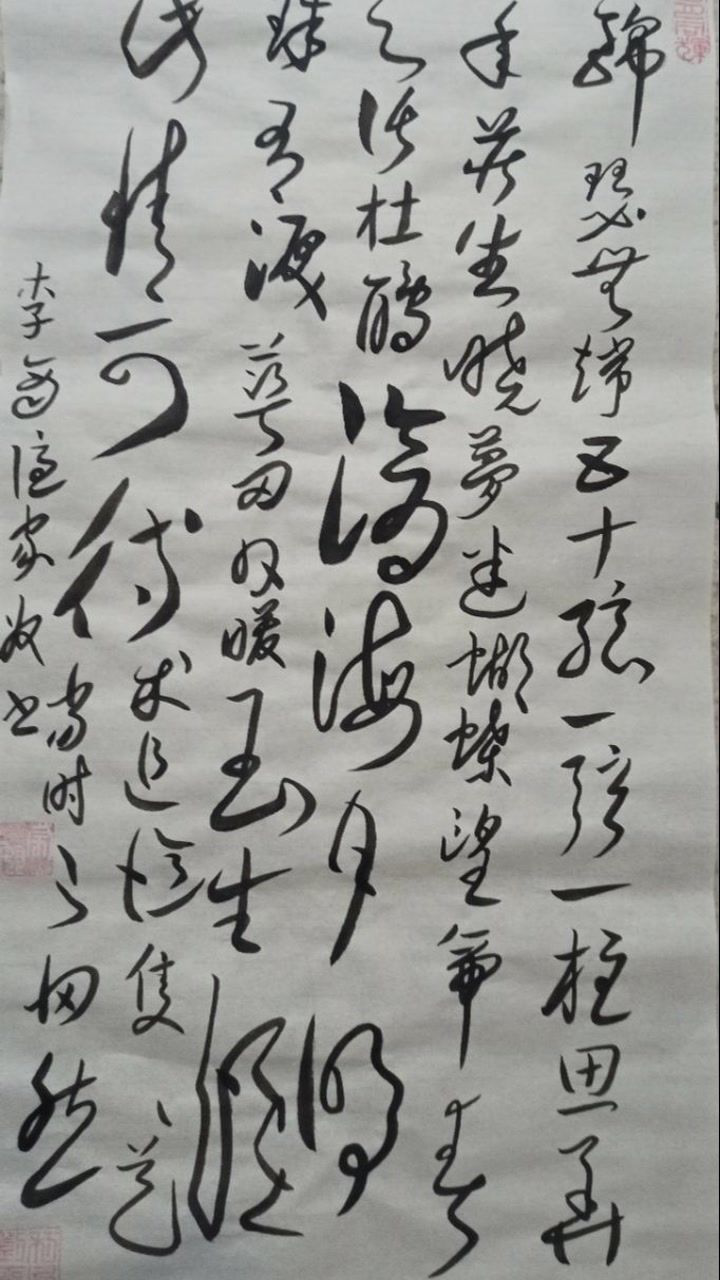 錦瑟無端五十弦一弦一柱思華
年莊生曉夢迷蝴蝶望帝春
心託杜鵑滄海月明
珠有淚藍田日暖玉生煙
此情可待成追憶隻是
當时已惘然
李商隱
书